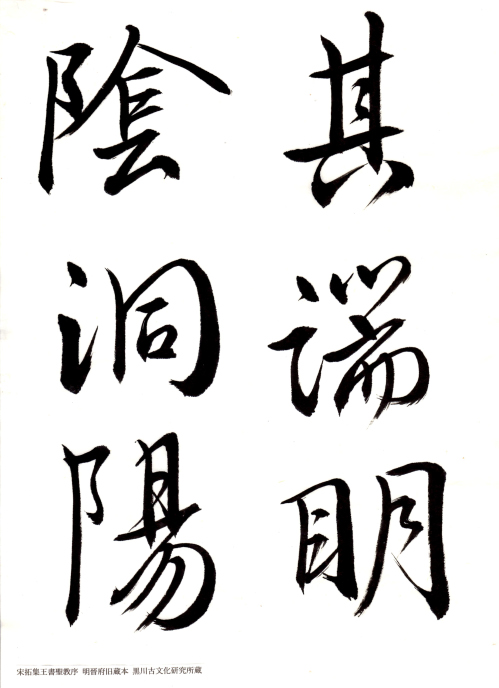 其端明
陰洞陽
宋拓集王書聖教序 明晉府旧蔵本 黒川古文化研究所蔵